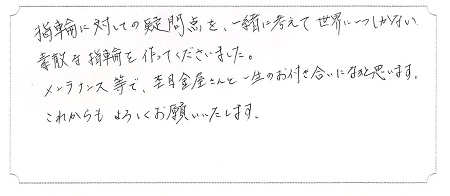 指輪に対しての疑問点を、一緒に考えて世界に一つしかない
素敵な指輪を作ってくださいました。
メンテナンス等で、杢目金屋さんと一生のお付き合いになると思います。
これからも よろしくお願いいたします。